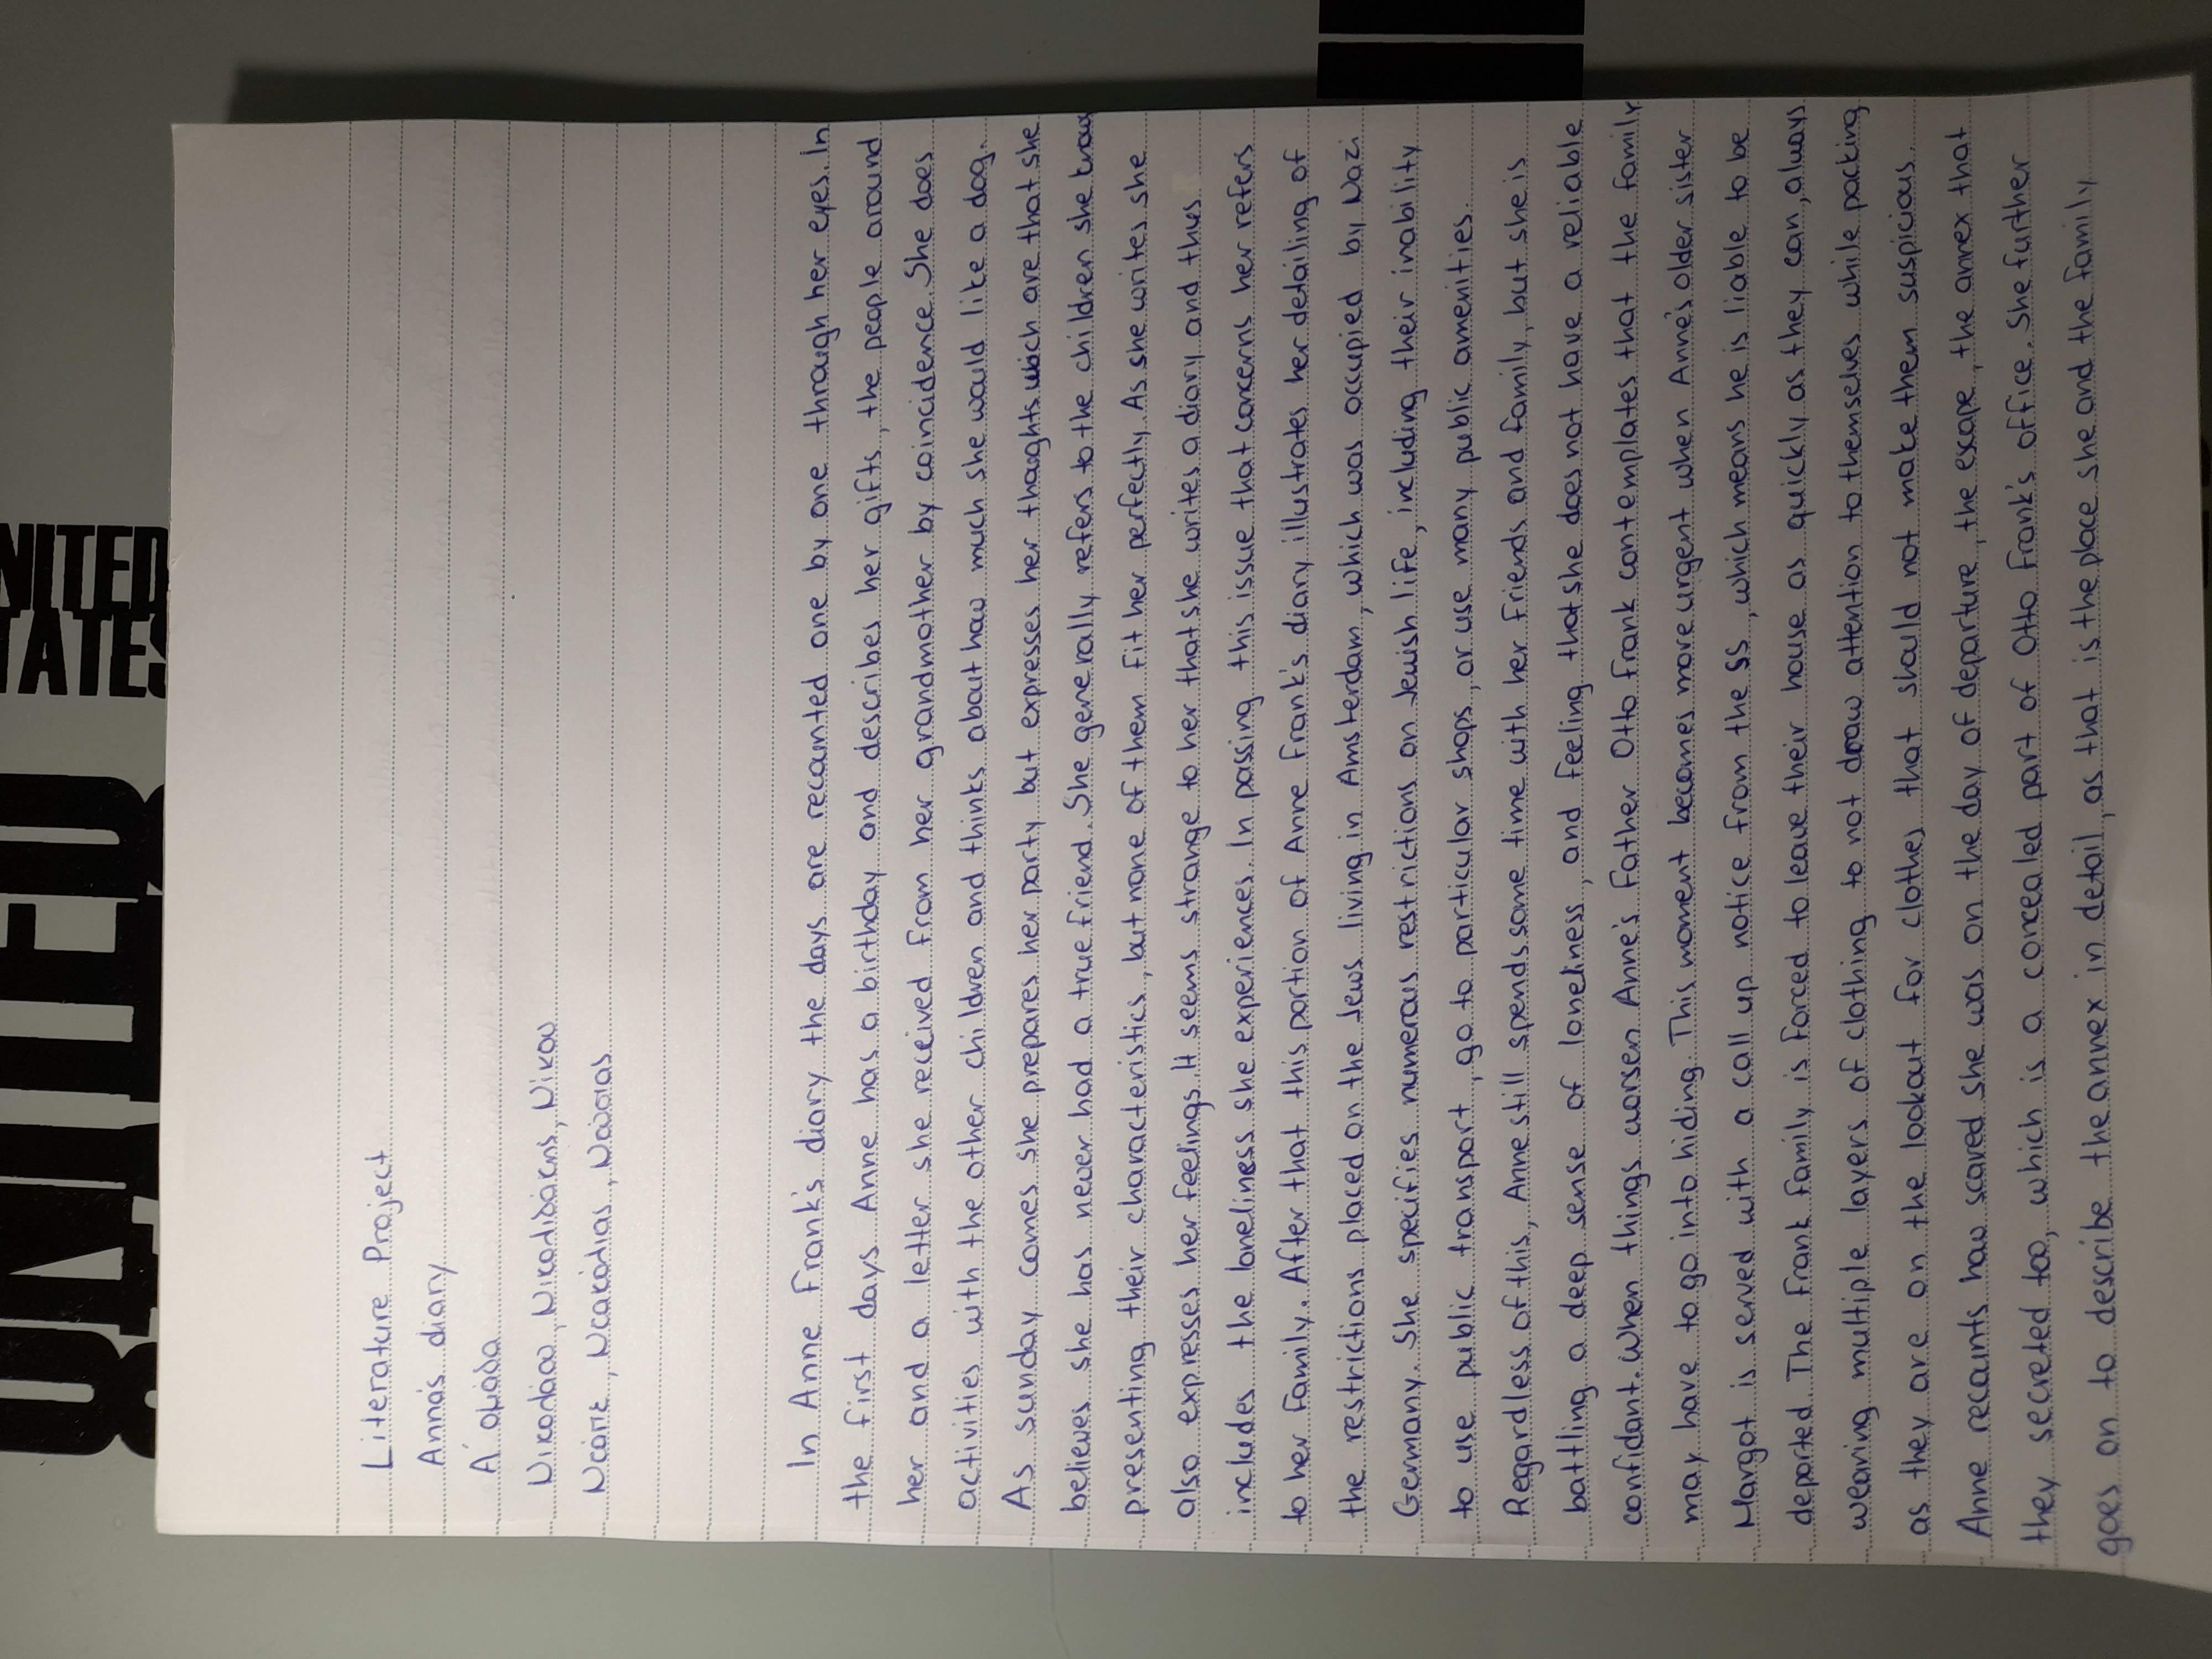 UNITED
STATES
UNITED
Literature Project
Anna's diary
Α' ομάδα
Νικολάου, Νικολιδάκης, Νίκου
Ντάπη, Νεακίδιας, Νούσιας
In Anne Frank's diary the days are recounted one by one through her eyes. In
the first days Anne has a birthday and describes her gifts, the people around
her and a letter she received from her grandmother by coincidence. She does
activities with the other children and thinks about how much she would like a dog.
As sunday comes she prepares her party but expresses her thoughts which are that she
believes she has never had a true friend. She generally refers to the children she know
presenting their characteristics, but none of them fit her perfectly. As she writes she
also expresses her feelings. It seems strange to her that she writes a diary and thus
includes the loneliness she experiences. In passing this issue that concerns her refers
to her family. After that this portion of Anne Frank's diary illustrates her detailing of
the restrictions placed on the Jews living in Amsterdam, which was occupied by Nazi
Germany. She specifies numerous restrictions on Jewish life, including their inability
to use public transport, go to particular shops, or use many public amenities.
Regardless of this, Anne still spends some time with her friends and family, but she is
battling a deep sense of loneliness, and feeling that she does not have a reliable
confidant. When things worsen Anne's father Otto Frank contemplates that the family
may have to go into hiding. This moment becomes more urgent when Anne's older sister
Margot is served with a call up notice from the SS, which means he is liable to be
deported. The Frank family is forced to leave their house as quickly as they can, always
wearing multiple layers of clothing to not draw attention to themselves while packing
as they are on the lookout for clothes that should not make them suspicious.
Anne recounts how scared she was on the day of departure, the escape, the annex that
they secreted too, which is a concealed part of Otto Frank's office. She further
goes on to describe the annex in detail, as that is the place she and the family